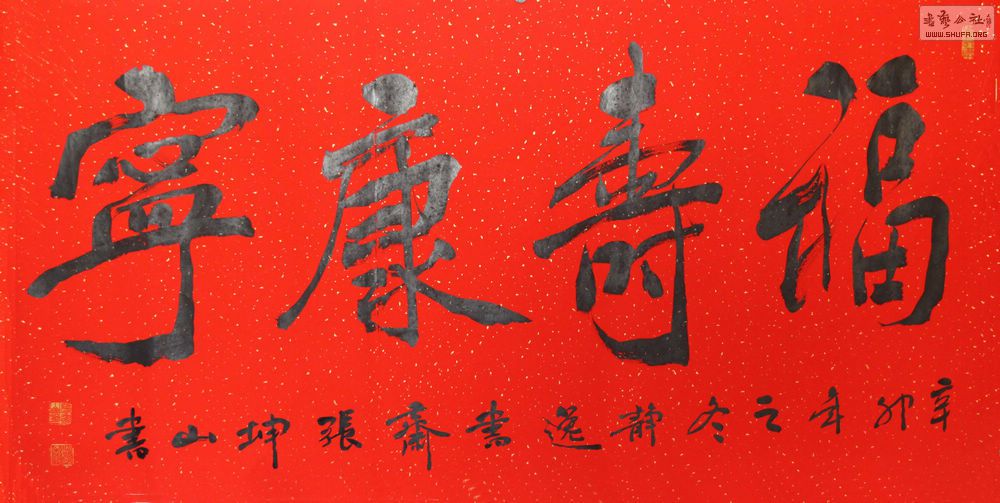 福壽康寧
辛卯年之冬靜逸書齋張坤山書
書藝公社
WWW.SHUFA.ORG